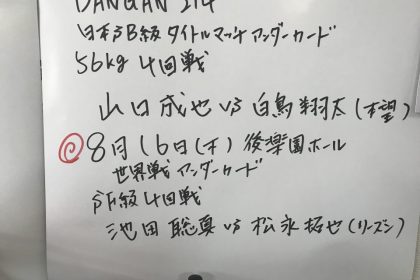 DANGAN 214
日本SB級タイトルマッチ アンダーカード
56kg 4回戦
山口成也 vs 白鳥翔太(本望)
◎8月16日(木) 後楽園ホール
世界戦アンダーカード
SF級4回戦
池田聡真 vs 松永拓也(リーズン)